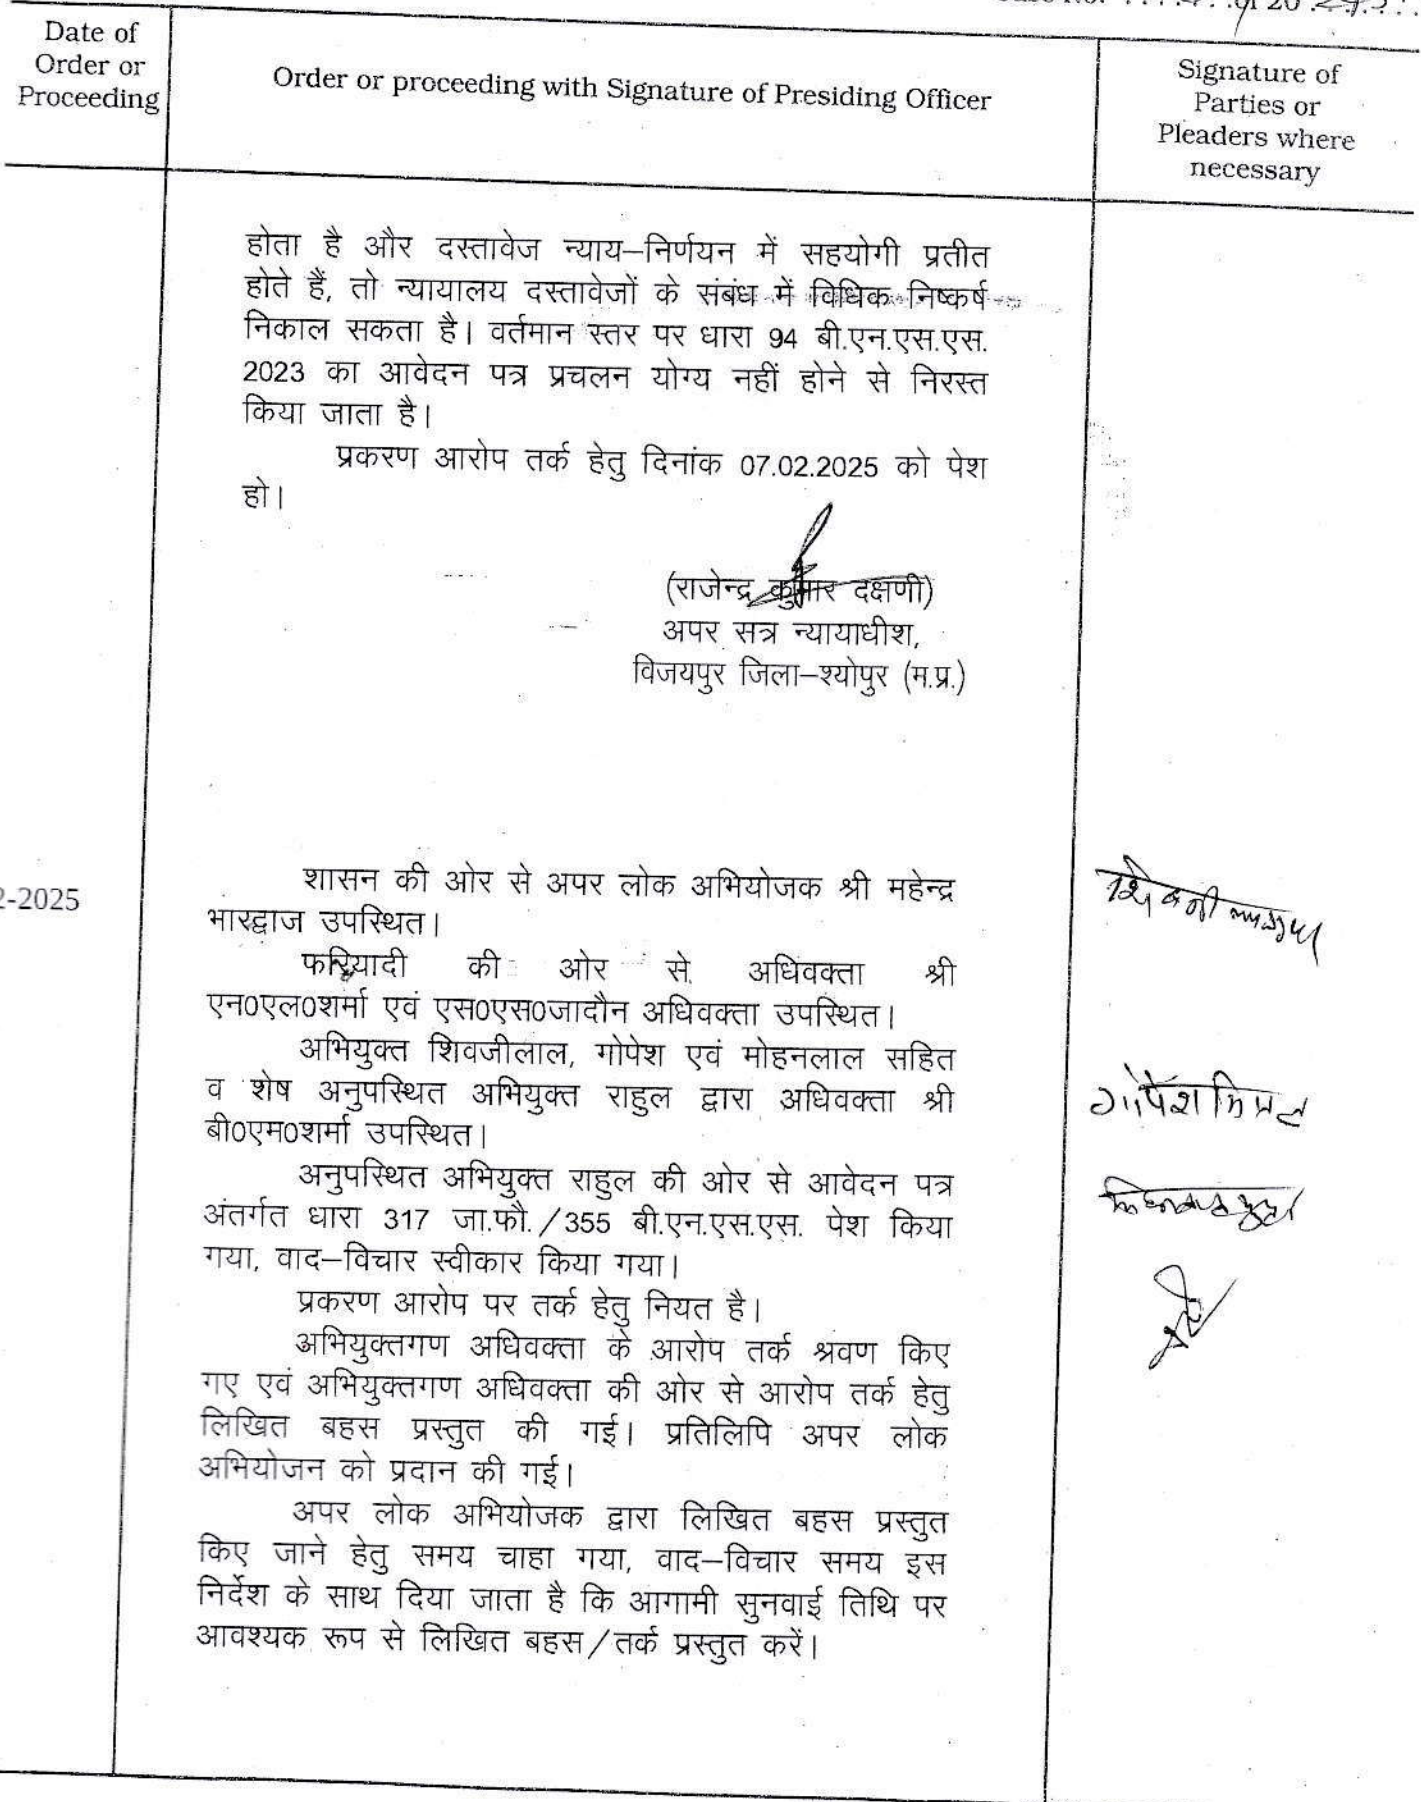 of 20
Date of
Order or
Proceeding
Order or proceeding with Signature of Presiding Officer
Signature of
Parties or
Pleaders where
necessary
होता है और दस्तावेज न्याय–निर्णयन में सहयोगी प्रतीत
होते हैं, तो न्यायालय दस्तावेजों के संबंध में विधिक निष्कर्ष
निकाल सकता है। वर्तमान स्तर पर धारा 94 बी.एन.एस.एस.
2023 का आवेदन पत्र प्रचलन योग्य नहीं होने से निरस्त
किया जाता है।
प्रकरण आरोप तर्क हेतु दिनांक 07.02.2025 को पेश
हो।
(राजेन्द्र कुमार दक्षणी)
अपर सत्र न्यायाधीश,
विजयपुर जिला–श्योपुर (म.प्र.)
2-2025
शासन की ओर से अपर लोक अभियोजक श्री महेन्द्र
भारद्वाज उपस्थित।
फरियादी की ओर से अधिवक्ता श्री
एन0एल0शर्मा एवं एस0एस0जादौन अधिवक्ता उपस्थित।
अभियुक्त शिवजीलाल, गोपेश एवं मोहनलाल सहित
व शेष अनुपस्थित अभियुक्त राहुल द्वारा अधिवक्ता श्री
बी0एम0शर्मा उपस्थित।
अनुपस्थित अभियुक्त राहुल की ओर से आवेदन पत्र
अंतर्गत धारा 317 जा.फौ./355 बी.एन.एस.एस. पेश किया
गया, वाद–विचार स्वीकार किया गया।
प्रकरण आरोप पर तर्क हेतु नियत है।
अभियुक्तगण अधिवक्ता के आरोप तर्क श्रवण किए
गए एवं अभियुक्तगण अधिवक्ता की ओर से आरोप तर्क हेतु
लिखित बहस प्रस्तुत की गई। प्रतिलिपि अपर लोक
अभियोजन को प्रदान की गई।
अपर लोक अभियोजक द्वारा लिखित बहस प्रस्तुत
किए जाने हेतु समय चाहा गया, वाद–विचार समय इस
निर्देश के साथ दिया जाता है कि आगामी सुनवाई तिथि पर
आवश्यक रूप से लिखित बहस/तर्क प्रस्तुत करें।